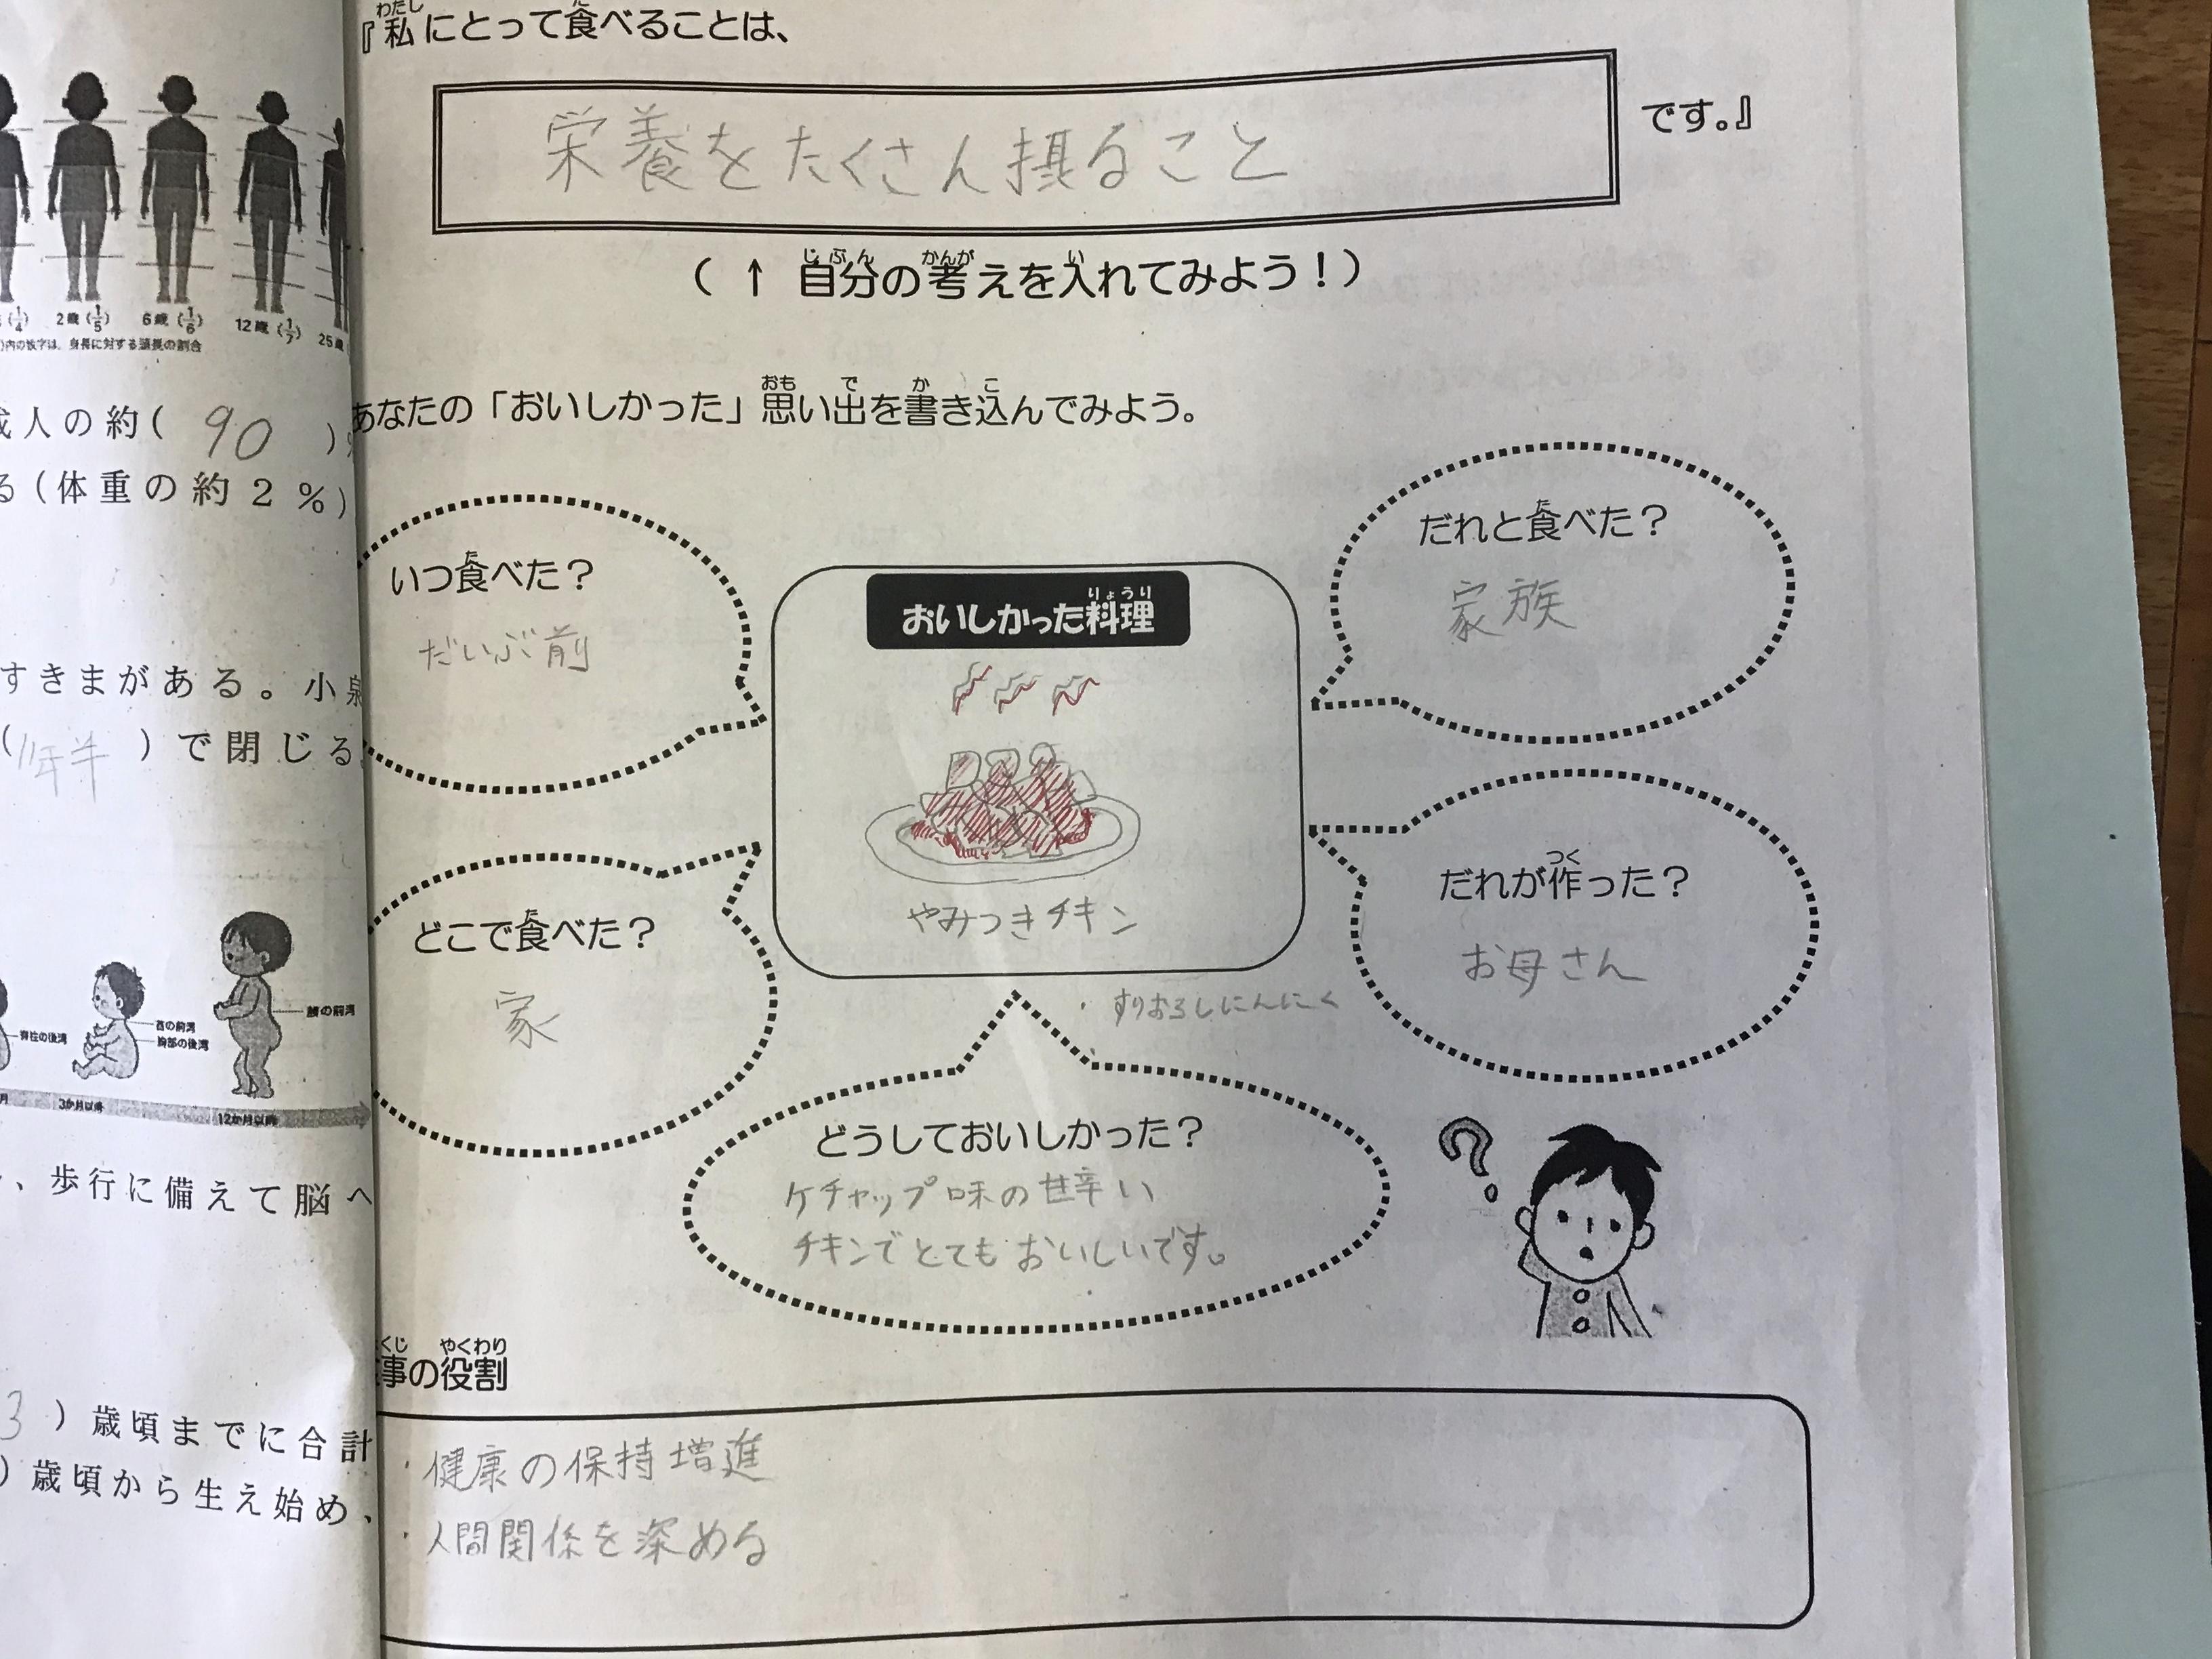 『私にとって食べることは、
わたし た
栄養をたくさん摂ること
です。』
(↑ 自分の考えを入れてみよう!)
じぶん かんが い
あなたの「おいしかった」思い出を書き込んでみよう。
おも で か こ
いつ食べた?
た
だいぶ前
だれと食べた?
た
家族
おいしかった料理
りょうり
やみつきチキン
どこで食べた?
た
家
だれが作った?
つく
お母さん
・すりおろしにんにく
どうしておいしかった?
ケチャップ味の甘辛い
チキンでとてもおいしいです。
事の役割
くじ やくわり
・健康の保持増進
・人間関係を深める
(1/4)
2歳(1/5)
6歳(1/6)
12歳(1/7)
25歳
)内の数字は、身長に対する頭長の割合
人の約( 90 )
る(体重の約2%)
すきまがある。小泉
(1年半)で閉じる
脊柱の後湾
首の前湾
胸部の後湾
腰の前湾
月
3か月以降
12か月以降
、歩行に備えて脳へ
3 )歳頃までに合計
)歳頃から生え始め、